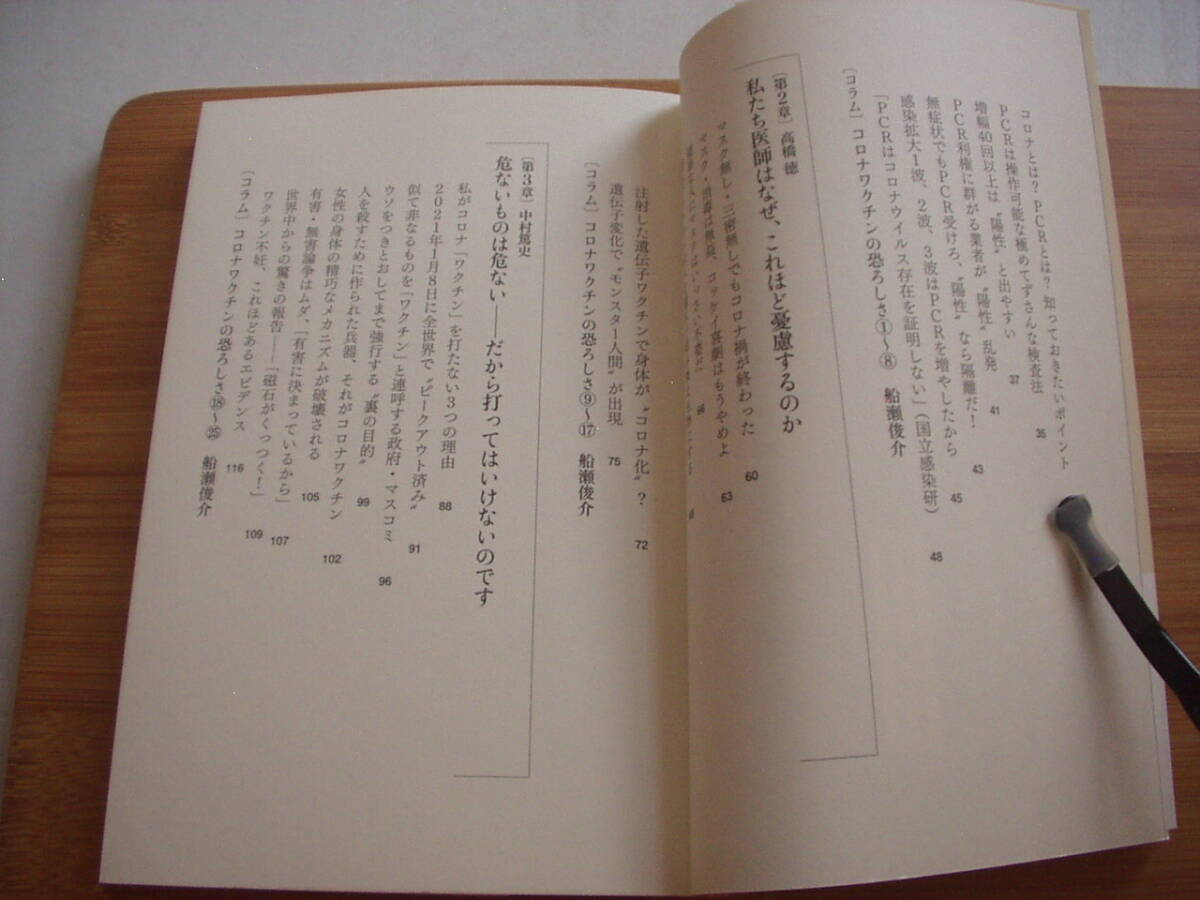 コロナとは？ PCRとは？ 知っておきたいポイント 35
PCRは操作可能な極めてずさんな検査法 37
増幅40回以上は〝陽性〟と出やすい 41
PCR利権に群がる業者が〝陽性〟乱発 43
無症状でもPCR受けろ、〝陽性〟なら隔離だ！ 45
感染拡大1波、2波、3波はPCRを増やしたから
「PCRはコロナウイルス存在を証明しない」（国立感染研） 48
［コラム］コロナワクチンの恐ろしさ①〜⑧ 船瀬俊介
［第2章］高橋 徳
私たち医師はなぜ、これほど憂慮するのか
マスク無し・三密無しでもコロナ禍が終わった 60
マスク・消毒は無意、コッケイ喜劇はもうやめよ 63
注射した遺伝子ワクチンで身体が〝コロナ化〟？ 72
遺伝子変化で〝モンスター人間〟が出現 75
［コラム］コロナワクチンの恐ろしさ⑨〜⑰ 船瀬俊介
［第3章］中村篤史
危ないものは危ない——だから打ってはいけないのです
私がコロナ「ワクチン」を打たない3つの理由 88
2021年1月8日に全世界で〝ピークアウト済み〟 91
似て非なるものを「ワクチン」と連呼する政府・マスコミ 96
ウソをつきとおしてまで強行する〝裏の目的〟 99
人を殺すために作られた兵器、それがコロナワクチン 102
女性の身体の精巧なメカニズムが破壊される 105
有害・無害論争はムダ、「有害に決まっているから」 107
世界中からの驚きの報告——「磁石がくっつく！」 109
ワクチン不妊、これほどあるエビデンス 116
［コラム］コロナワクチンの恐ろしさ⑱〜㉕ 船瀬俊介